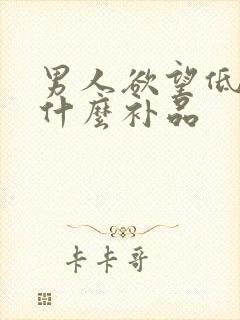 男人欲望低
什麼补品
卡卡哥